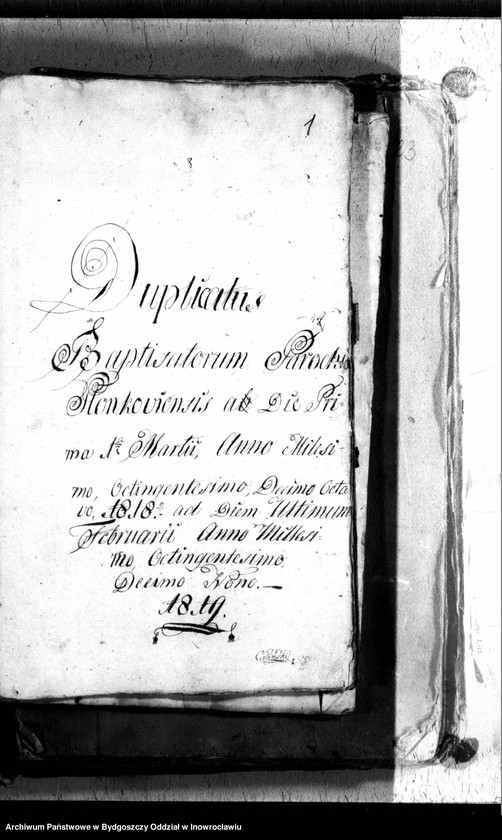 1
23
Duplicatus
Baptisatorum Parochiæ
Plonkoviensis ab Die Pri-
ma 1ᵐᵃ Martii, Anno Milesi-
mo, Octingentesimo, Decimo Octa
vo, 1818ᵒ ad Diem Ultimum
Februarii Anno Millesi-
mo, Octingentesimo,
Decimo Nono.—
1819.
Archiwum Państwowe w Bydgoszczy Oddział w Inowrocławiu